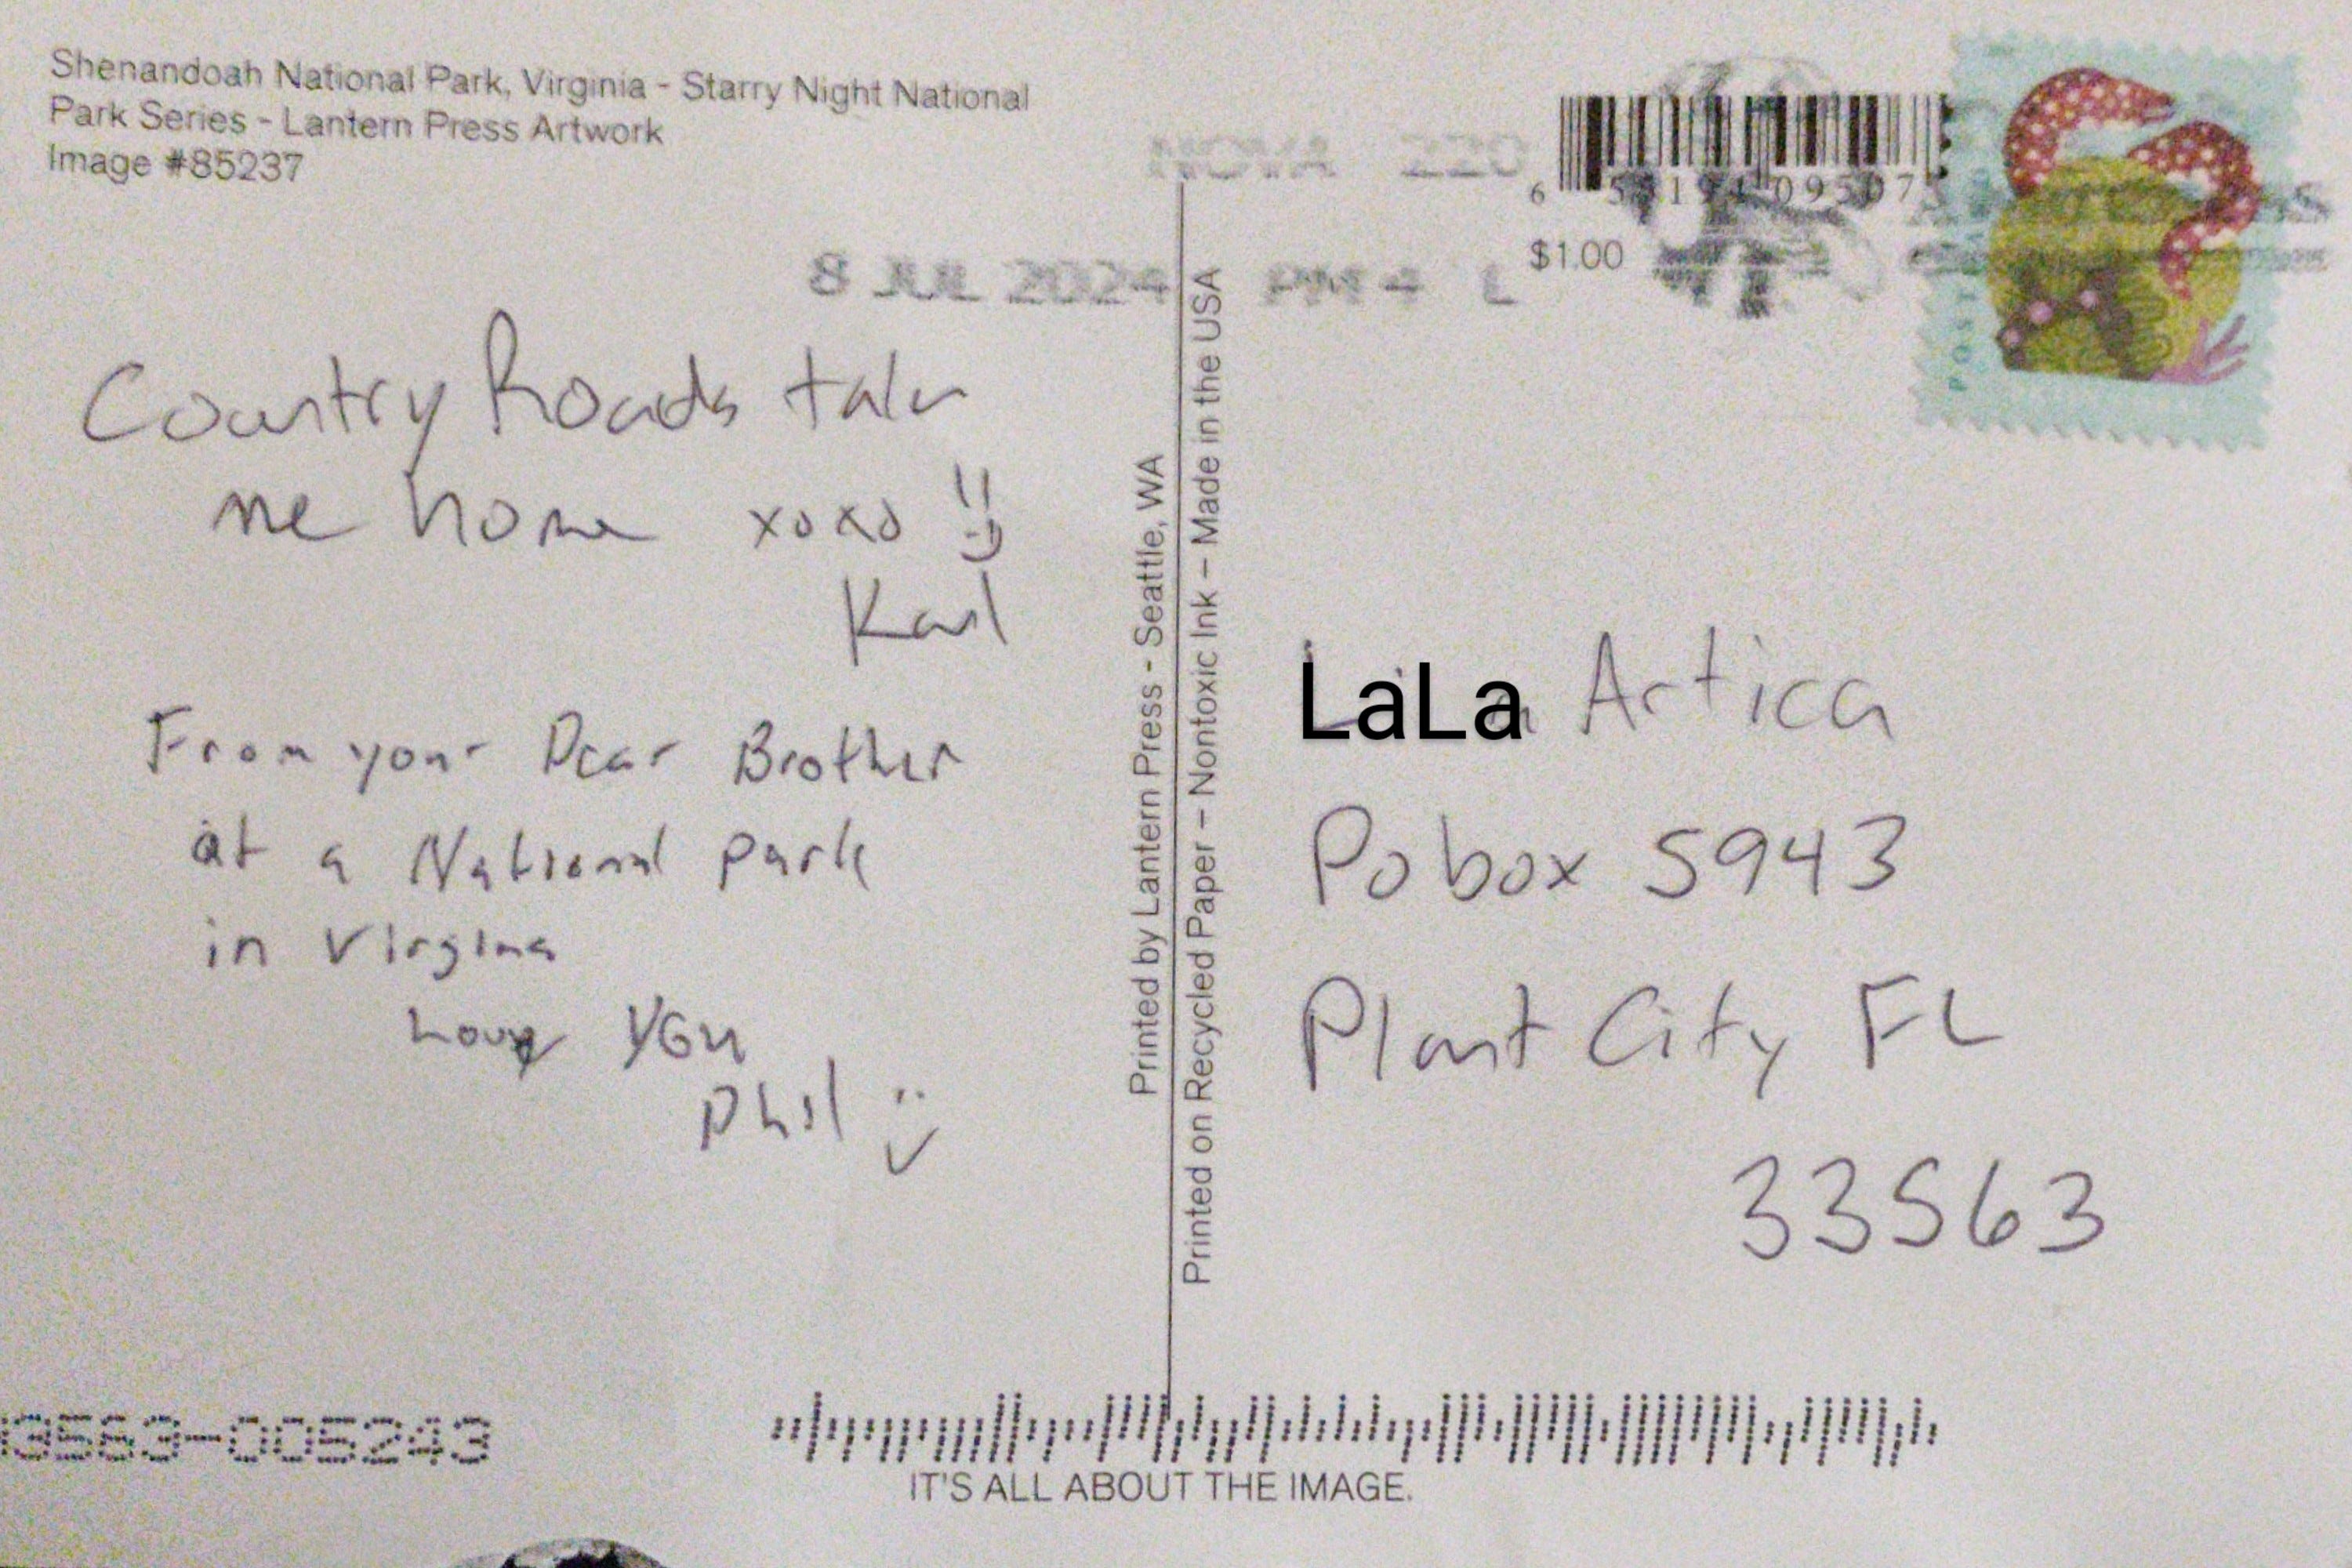 Shenandoah National Park, Virginia - Starry Night National
Park Series - Lantern Press Artwork
Image #85237
NOVA 220
8 JUL 2024 PM 4 L
$1.00
Country Roads take
me home xoxo !!
Karl
From your Dear Brother
at a National park
in Virgina
Love you
Phil
Printed by Lantern Press - Seattle, WA
Printed on Recycled Paper – Nontoxic Ink – Made in the USA
LaLa Artica
Po box 5943
Plant City FL
33563
3563-005243
IT'S ALL ABOUT THE IMAGE.